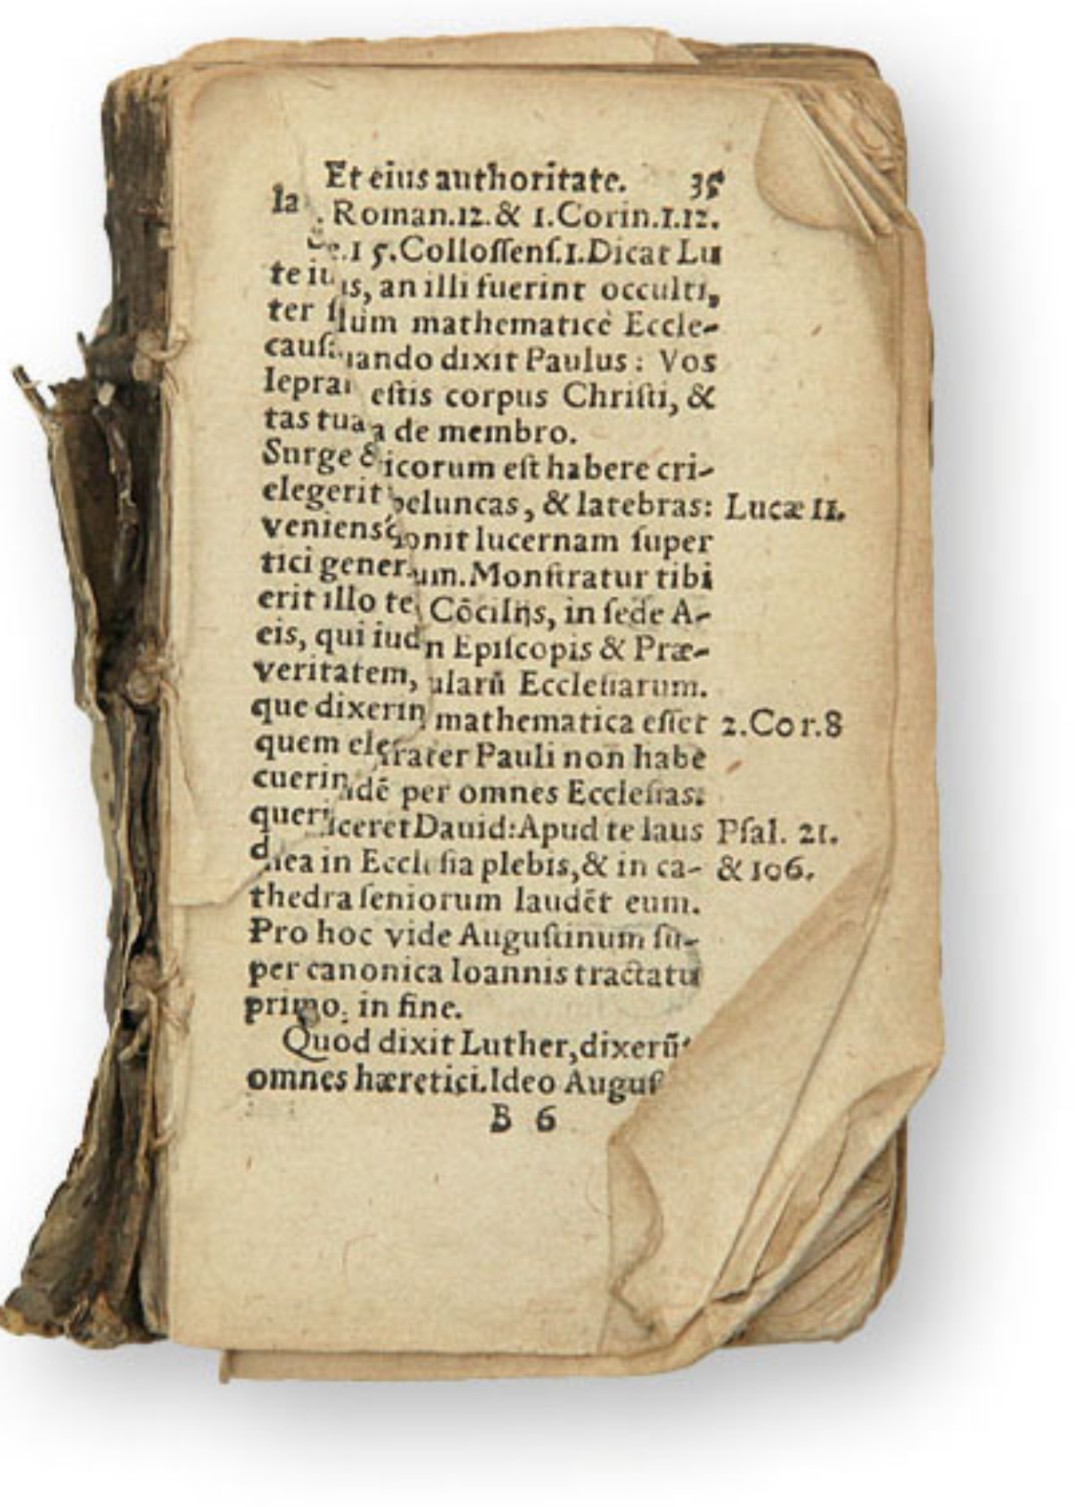 Et eius authoritate. 35
la . Roman.12.& 1.Corin.1.12.
.15.Collossens.1.Dicat Lu
te iu is, an illi fuerint occulti,
ter lum mathematicè Eccle-
caus uando dixit Paulus: Vos
lepra estis corpus Christi, &
tas tua a de membro.
Surge & icorum est habere cri-
elegerit peluncas, & latebras: Lucæ 11.
veniensq́ onit lucernam super
tici gener um. Monstratur tibi
erit illo te Cōcilijs, in sede A-
eis, qui iud n Episcopis & Præ-
veritatem, ularū Ecclesiarum.
que dixerin mathematica esset 2.Cor.8
quem ele frater Pauli non habe
cuerin idē per omnes Ecclesias:
quer iceret Dauid: Apud te laus Psal. 21.
d mea in Ecclesia plebis, & in ca- & 106.
thedra seniorum laudēt eum.
Pro hoc vide Augustinum su-
per canonica Ioannis tractatu
primo. in fine.
Quod dixit Luther, dixerūt
omnes hæretici. Ideo August
B 6